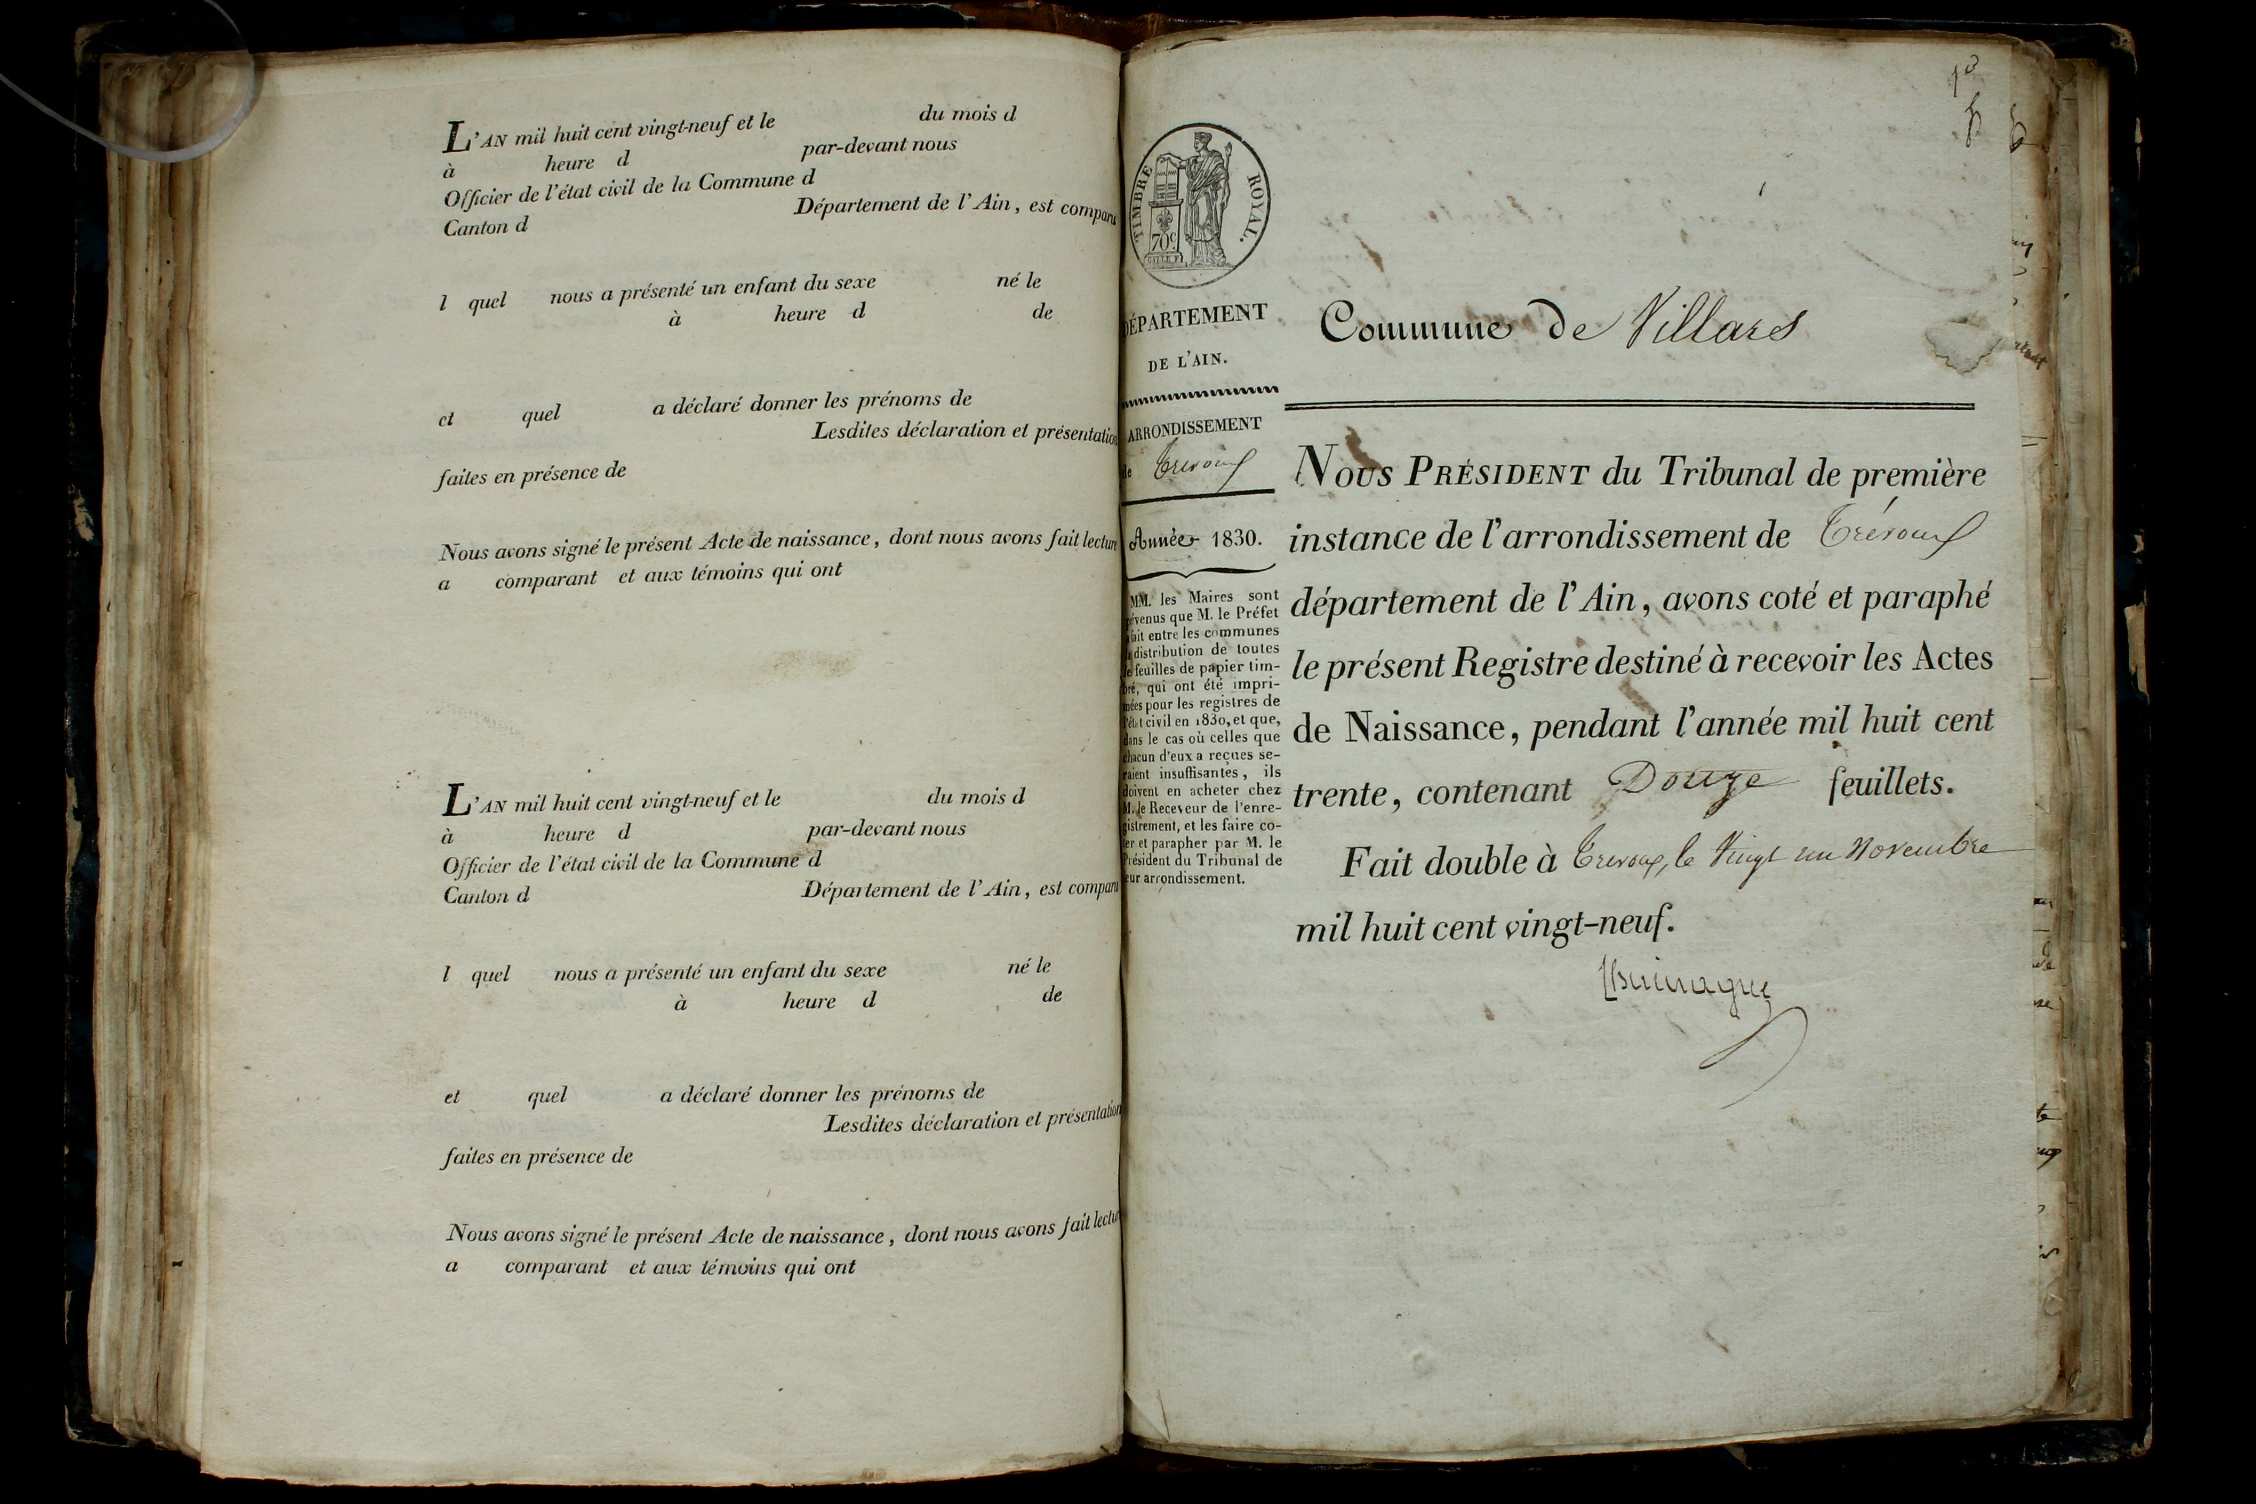 L'AN mil huit cent vingt-neuf et le du mois d
à heure d par-devant nous
Officier de l'état civil de la Commune d
Canton d Département de l'Ain, est comparu
l quel nous a présenté un enfant du sexe né le
à heure d de
et quel a déclaré donner les prénoms de
Lesdites déclaration et présentation
faites en présence de
Nous avons signé le présent Acte de naissance, dont nous avons fait lecture
a comparant et aux témoins qui ont
L'AN mil huit cent vingt-neuf et le du mois d
à heure d par-devant nous
Officier de l'état civil de la Commune d
Canton d Département de l'Ain, est comparu
l quel nous a présenté un enfant du sexe né le
à heure d de
et quel a déclaré donner les prénoms de
Lesdites déclaration et présentation
faites en présence de
Nous avons signé le présent Acte de naissance, dont nous avons fait lectu
a comparant et aux témoins qui ont
TIMBRE ROYAL.
70c
DÉPARTEMENT
DE L'AIN.
ARRONDISSEMENT
de Trevoux
Année 1830.
MM. les Maires sont
prévenus que M. le Préfet
a fait entre les communes
la distribution de toutes
les feuilles de papier tim-
bré, qui ont été impri-
mées pour les registres de
l'état civil en 1830, et que,
dans le cas où celles que
chacun d'eux a reçues se-
raient insuffisantes, ils
doivent en acheter chez
M. le Receveur de l'enre-
gistrement, et les faire co-
ter et parapher par M. le
Président du Tribunal de
leur arrondissement.
Commune de Villars
NOUS PRÉSIDENT du Tribunal de première
instance de l'arrondissement de Trévoux
département de l'Ain, avons coté et paraphé
le présent Registre destiné à recevoir les Actes
de Naissance, pendant l'année mil huit cent
trente, contenant Douze feuillets.
Fait double à Trevoux, le Vingt un Novembre
mil huit cent vingt-neuf.